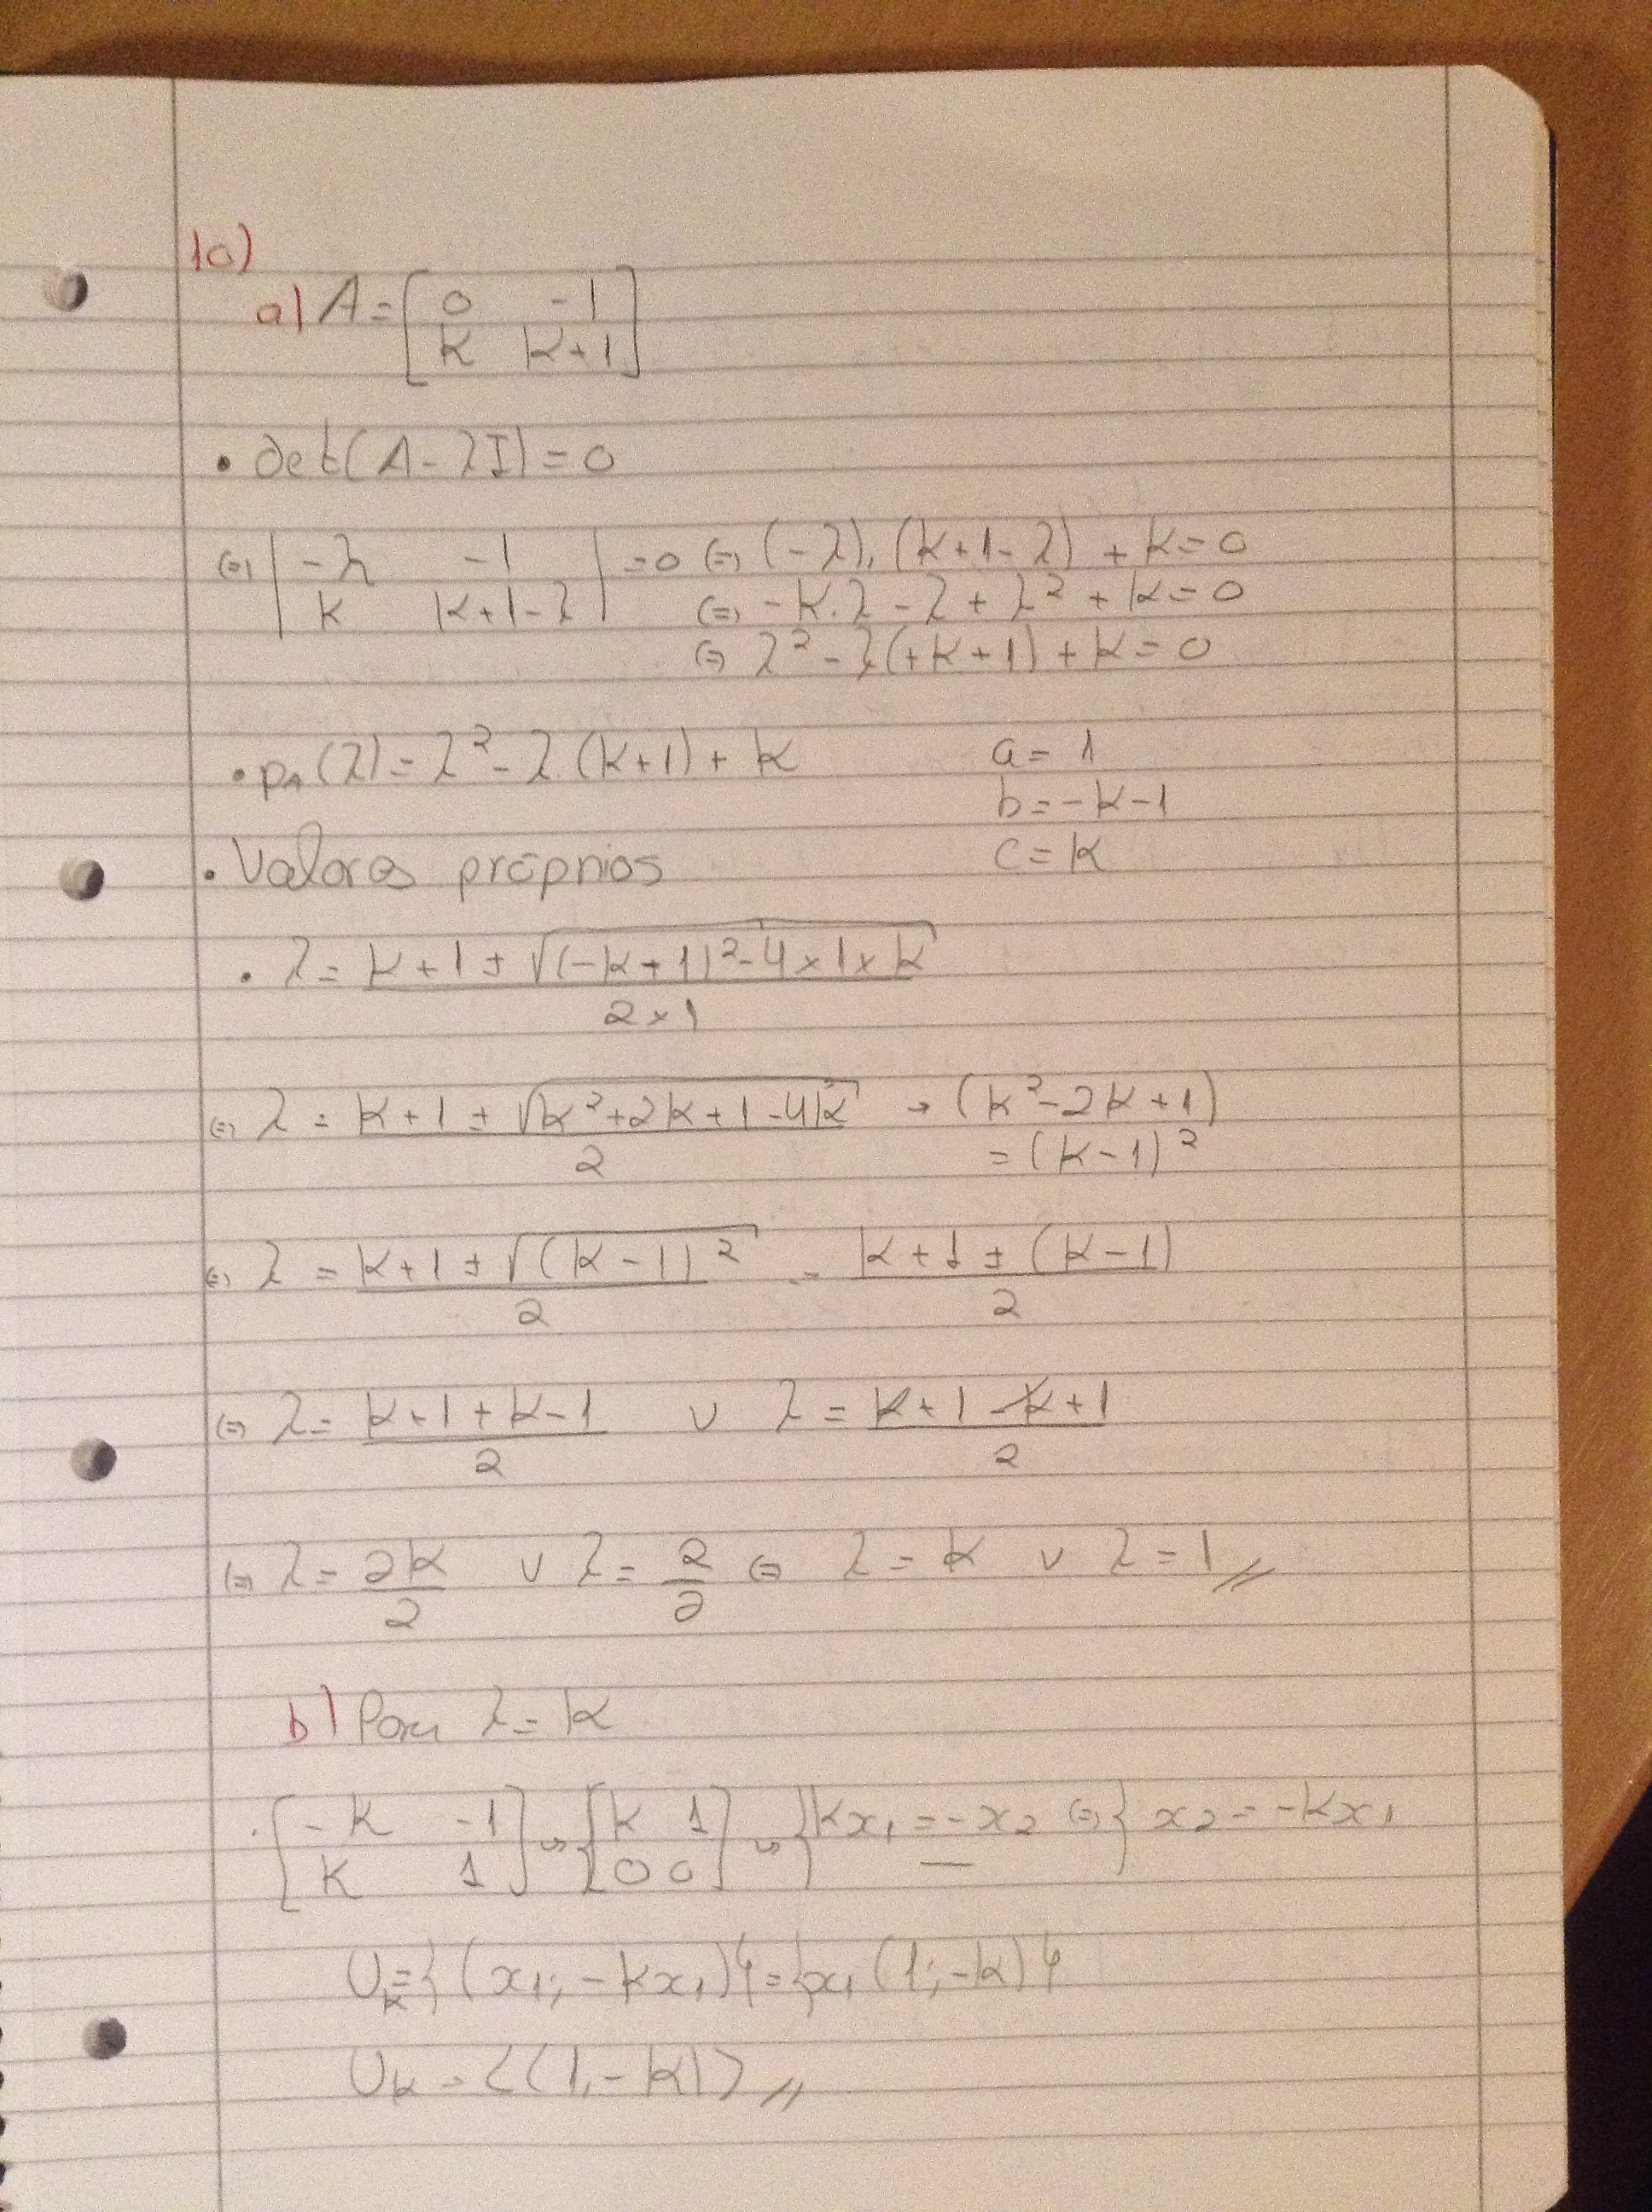 10)
a) A = [ 0 -1
K K+1 ]
• det(A - λI) = 0
(=) | -λ -1
K K+1-λ | = 0 (=) (-λ).(K+1-λ) + K = 0
(=) -K.λ - λ + λ² + K = 0
(=) λ² - λ(+K+1) + K = 0
• pA(λ) = λ² - λ(K+1) + K a = 1
b = -K-1
• Valores próprios c = K
• λ = K+1 ± √((-K+1)² - 4×1×K)
2×1
(=) λ = K+1 ± √(K²+2K+1-4K) → (K²-2K+1)
2 = (K-1)²
(=) λ = K+1 ± √((K-1)²) = K+1 ± (K-1)
2 2
(=) λ = K+1+K-1 ∨ λ = K+1-K+1
2 2
(=) λ = 2K/2 ∨ λ = 2/2 (=) λ = K ∨ λ = 1 //
b) Para λ = K
[ -K -1
K 1 ] ↪ [ K 1
0 0 ] ↪ { Kx₁ = -x₂ (=) { x₂ = -Kx₁
—
U_K = {(x₁; -Kx₁)} = {x₁(1; -K)}
U_K = <(1, -K)> //